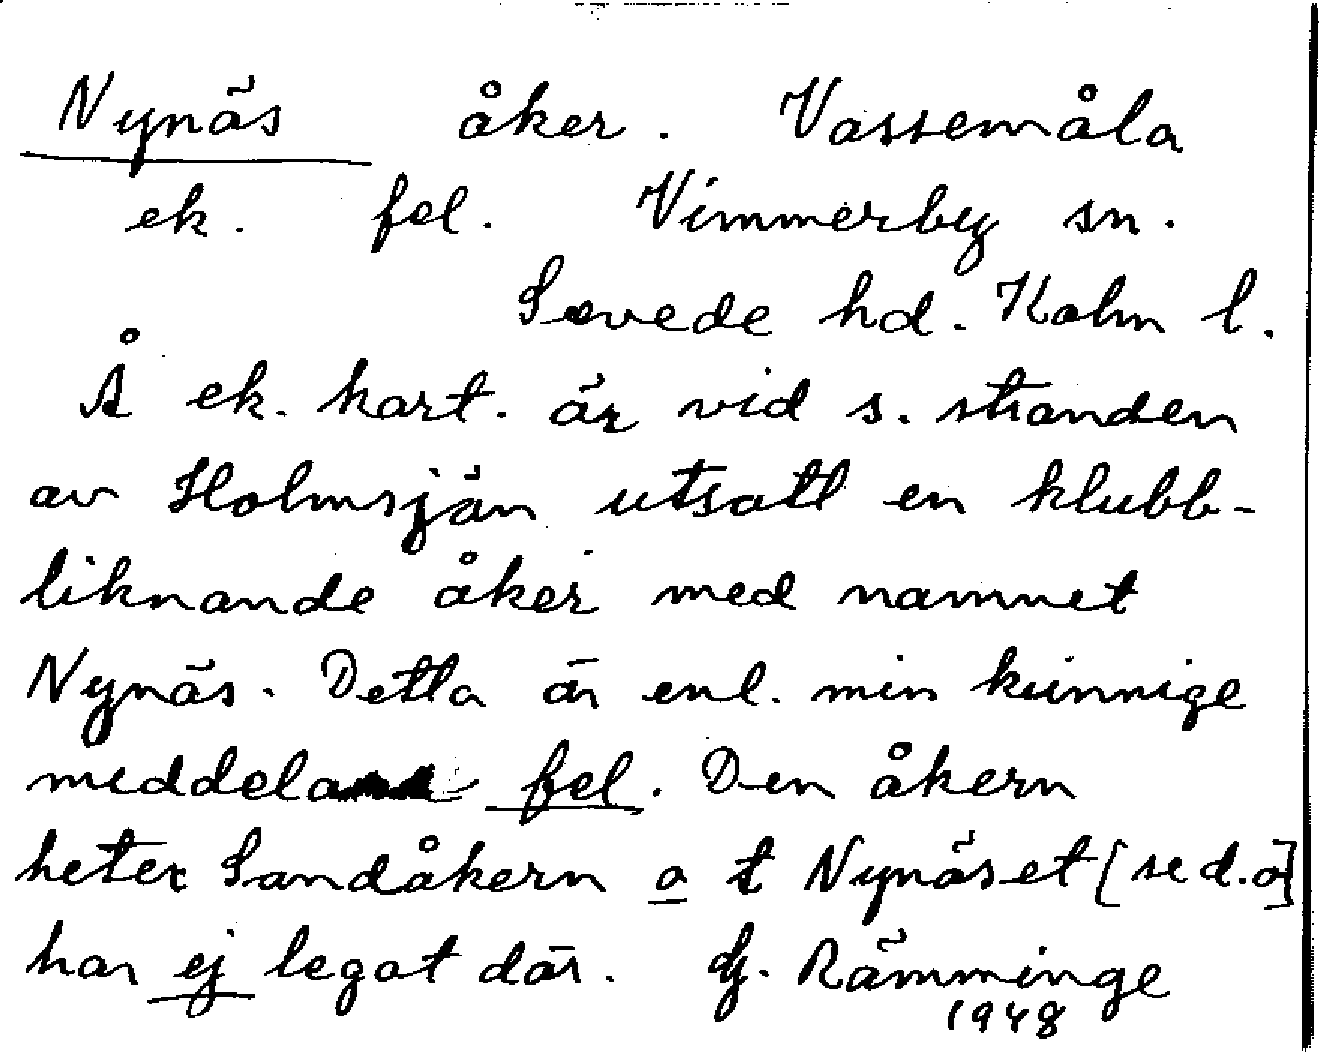 Nynäs åker. Vassemåla
ek. fel. Vimmerby sn.
Sevede hd. Kalm l.
Å ek. kart. är vid s. stranden
av Holmsjön utsatt en klubb-
liknande åker med namnet
Nynäs. Detta är enl. min kunnige
meddelare fel. Den åkern
heter Sandåkern o t Nynäset [se d.o]
har ej legat där. Rämminge
1948